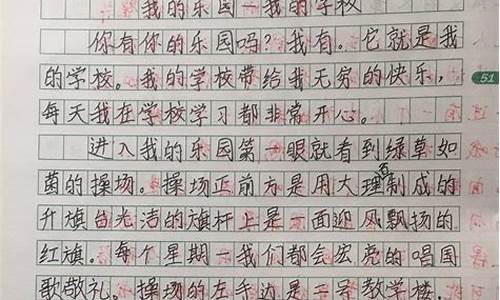 我的乐园—我的学校
你有你的乐园吗？我有。它就是我
的学校。我的学校带给我无穷的快乐，
每天我在学校学习都非常开心。
51
进入我的乐园第一眼就看到绿草如
茵的操场。操场正前方是用大理石制成的
升旗台光洁的旗杆上是一面迎风飘扬的
红旗。每个星期一我们都会宏亮的唱国
歌敬礼。操场的左手边是二号教学楼，